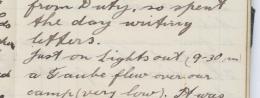 from Duty, so spent
the day writing
letters.
Just on Lights out (9-30 pm)
a Taube flew over our
camp (very low). It was